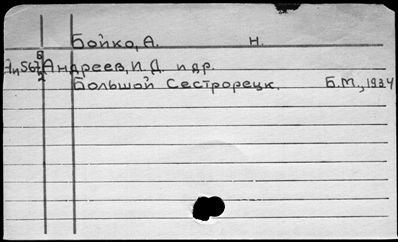 Бойко, А. Н.
Андреев, И.Д. и др.
Большой Сестрорецк. Б.М., 1934